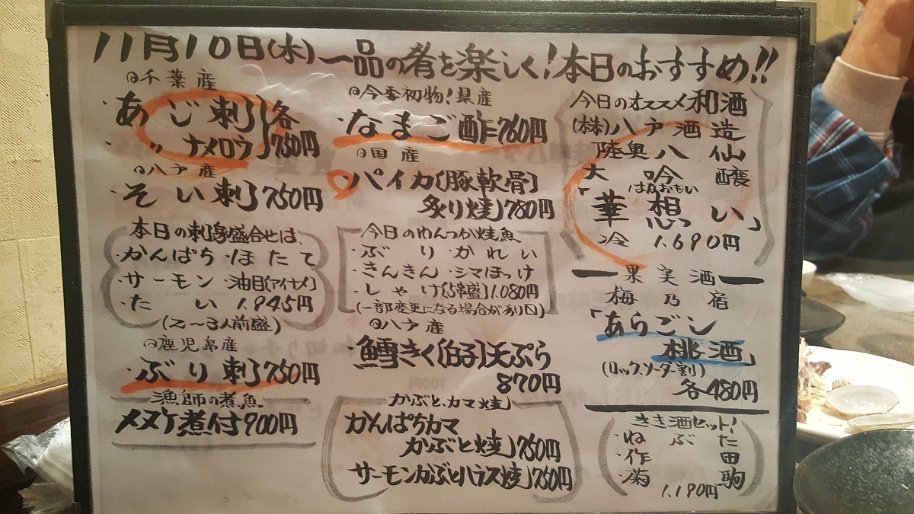 11月10日(木)一品の肴を楽しく!本日のおすすめ!!
@千葉産
あじ刺 各
〃 ナメロウ 750円
@八戸産
そい刺 750円
本日の刺身盛合せは、
・かんぱち・ほたて
・サーモン 油目(アイナメ)
・たい 1.945円
(2〜3人前盛)
@鹿児島産
ぶり刺 750円
漁師の煮魚
メヌケ煮付 900円
@今季初物!県産
なまこ酢 760円
@国産
パイカ(豚軟骨)
炙り焼 780円
今日のわんつか焼魚
・ぶり かれい
・きんきん・シマほっけ
・しゃけ 1.080円
(一部変更になる場合があり)
@八戸産
鱈きく(白子)天ぷら
870円
かぶと・カマ焼
かんぱちカマ
かぶと焼 760円
サーモンかぶとハラス焼 760円
今日のオススメ和酒
(株)八戸酒造
陸奥八仙
大吟醸
はなおもい
「華想い」
冷 1.690円
果実酒
梅乃宿
「あらごし
桃酒」
(ロック、ソーダー割)
各480円
きき酒セット!
・ねぶた
・作田
・菊駒
1.190円